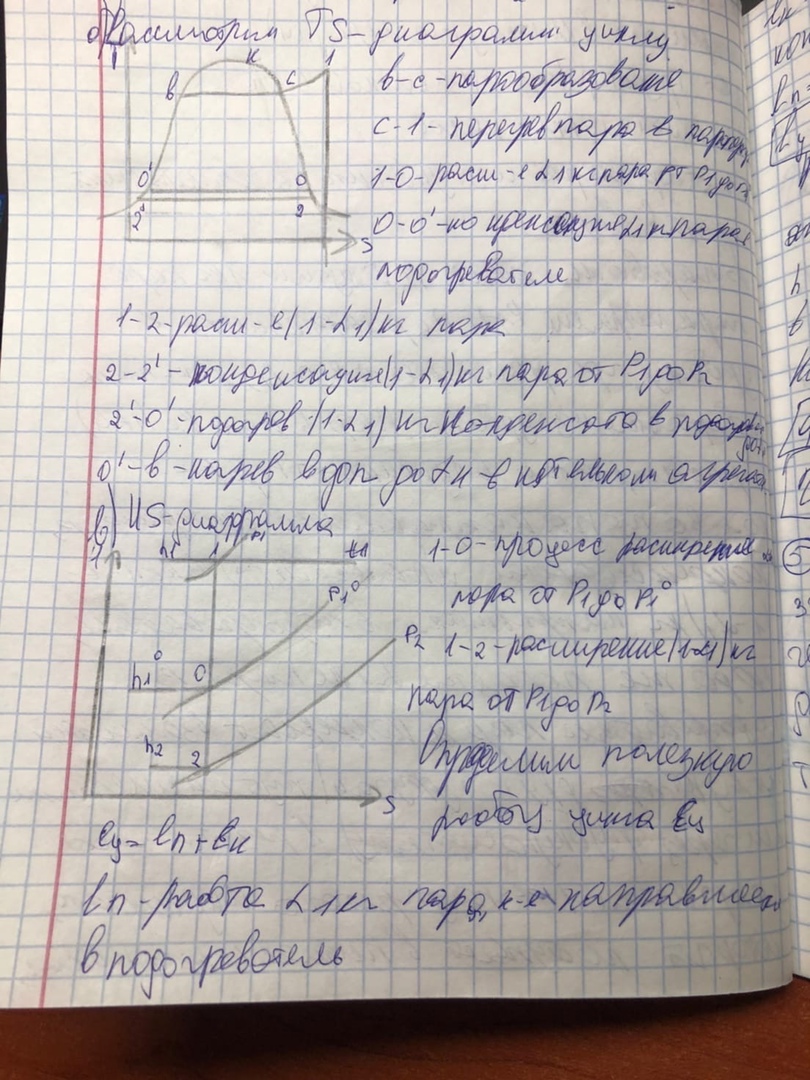 б) Рассмотрим TS-диаграмму циклу
T
К
1
в
с
в-с-парообразование
с-1- перегрев пара в
0'
0
1-0- расш-е α1 кг пара от P1 до
2'
2
S
0-0'- конденсация α1 кг пара в
подогревателе
1-2-расш-е (1-α1) кг пара
2-2'- конденсация (1-α1) кг пара от P1 до P2
2'-0'-подогрев (1-α1) кг конденсата в
0'-в-нагрев воды до tн-в котельном агрегате
в) HS-диаграмма
h1
1
P1
t1
1-0-процесс расширения
P1⁰
пара от P1 до P1⁰
P2
1-2-расширение (1-α1) кг
h1⁰
0
пара от P1 до P2
h2
2
Определим полезную
S
работу цикла ℓц
ℓц=ℓп+ℓк
ℓп-работа α1 кг пара, к-е направляется
в подогреватель